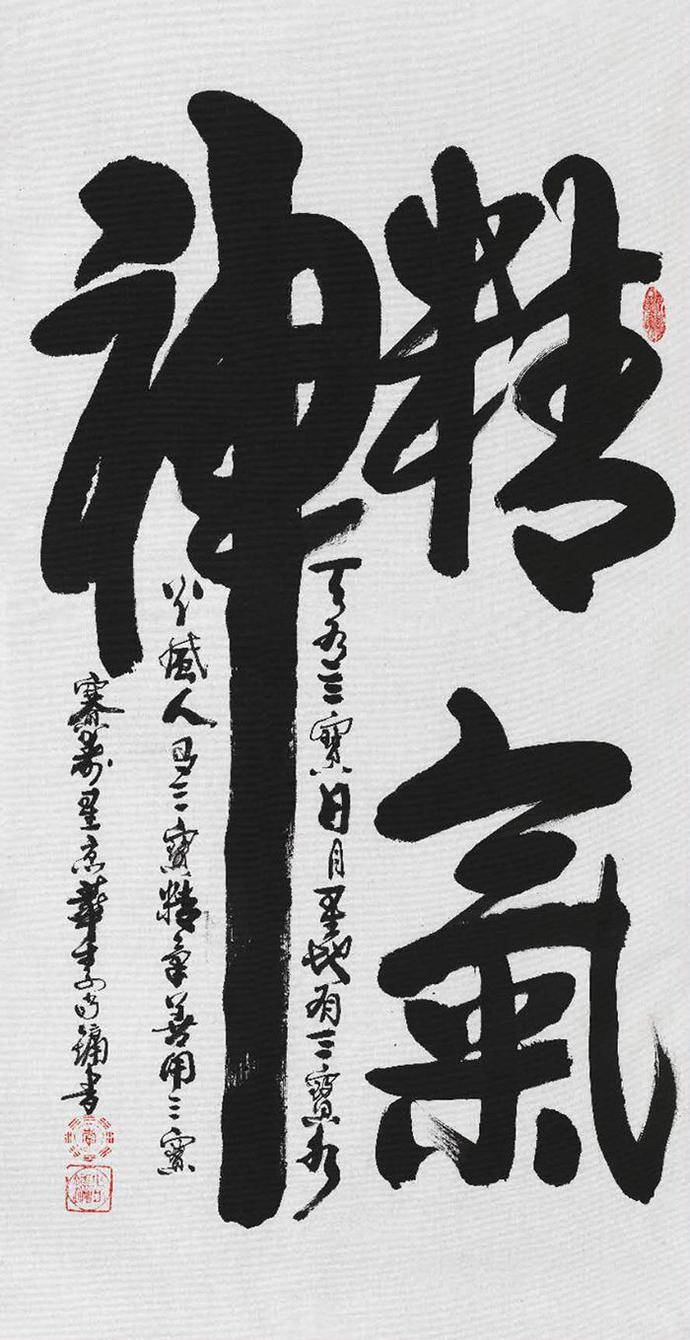 精氣
神
天有三寶日月星地有三寶水
火風人有三寶精氣善用三寶
賽壽星京華李尚鏞書